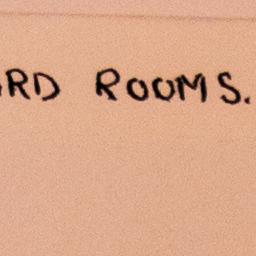 RD ROOMS.